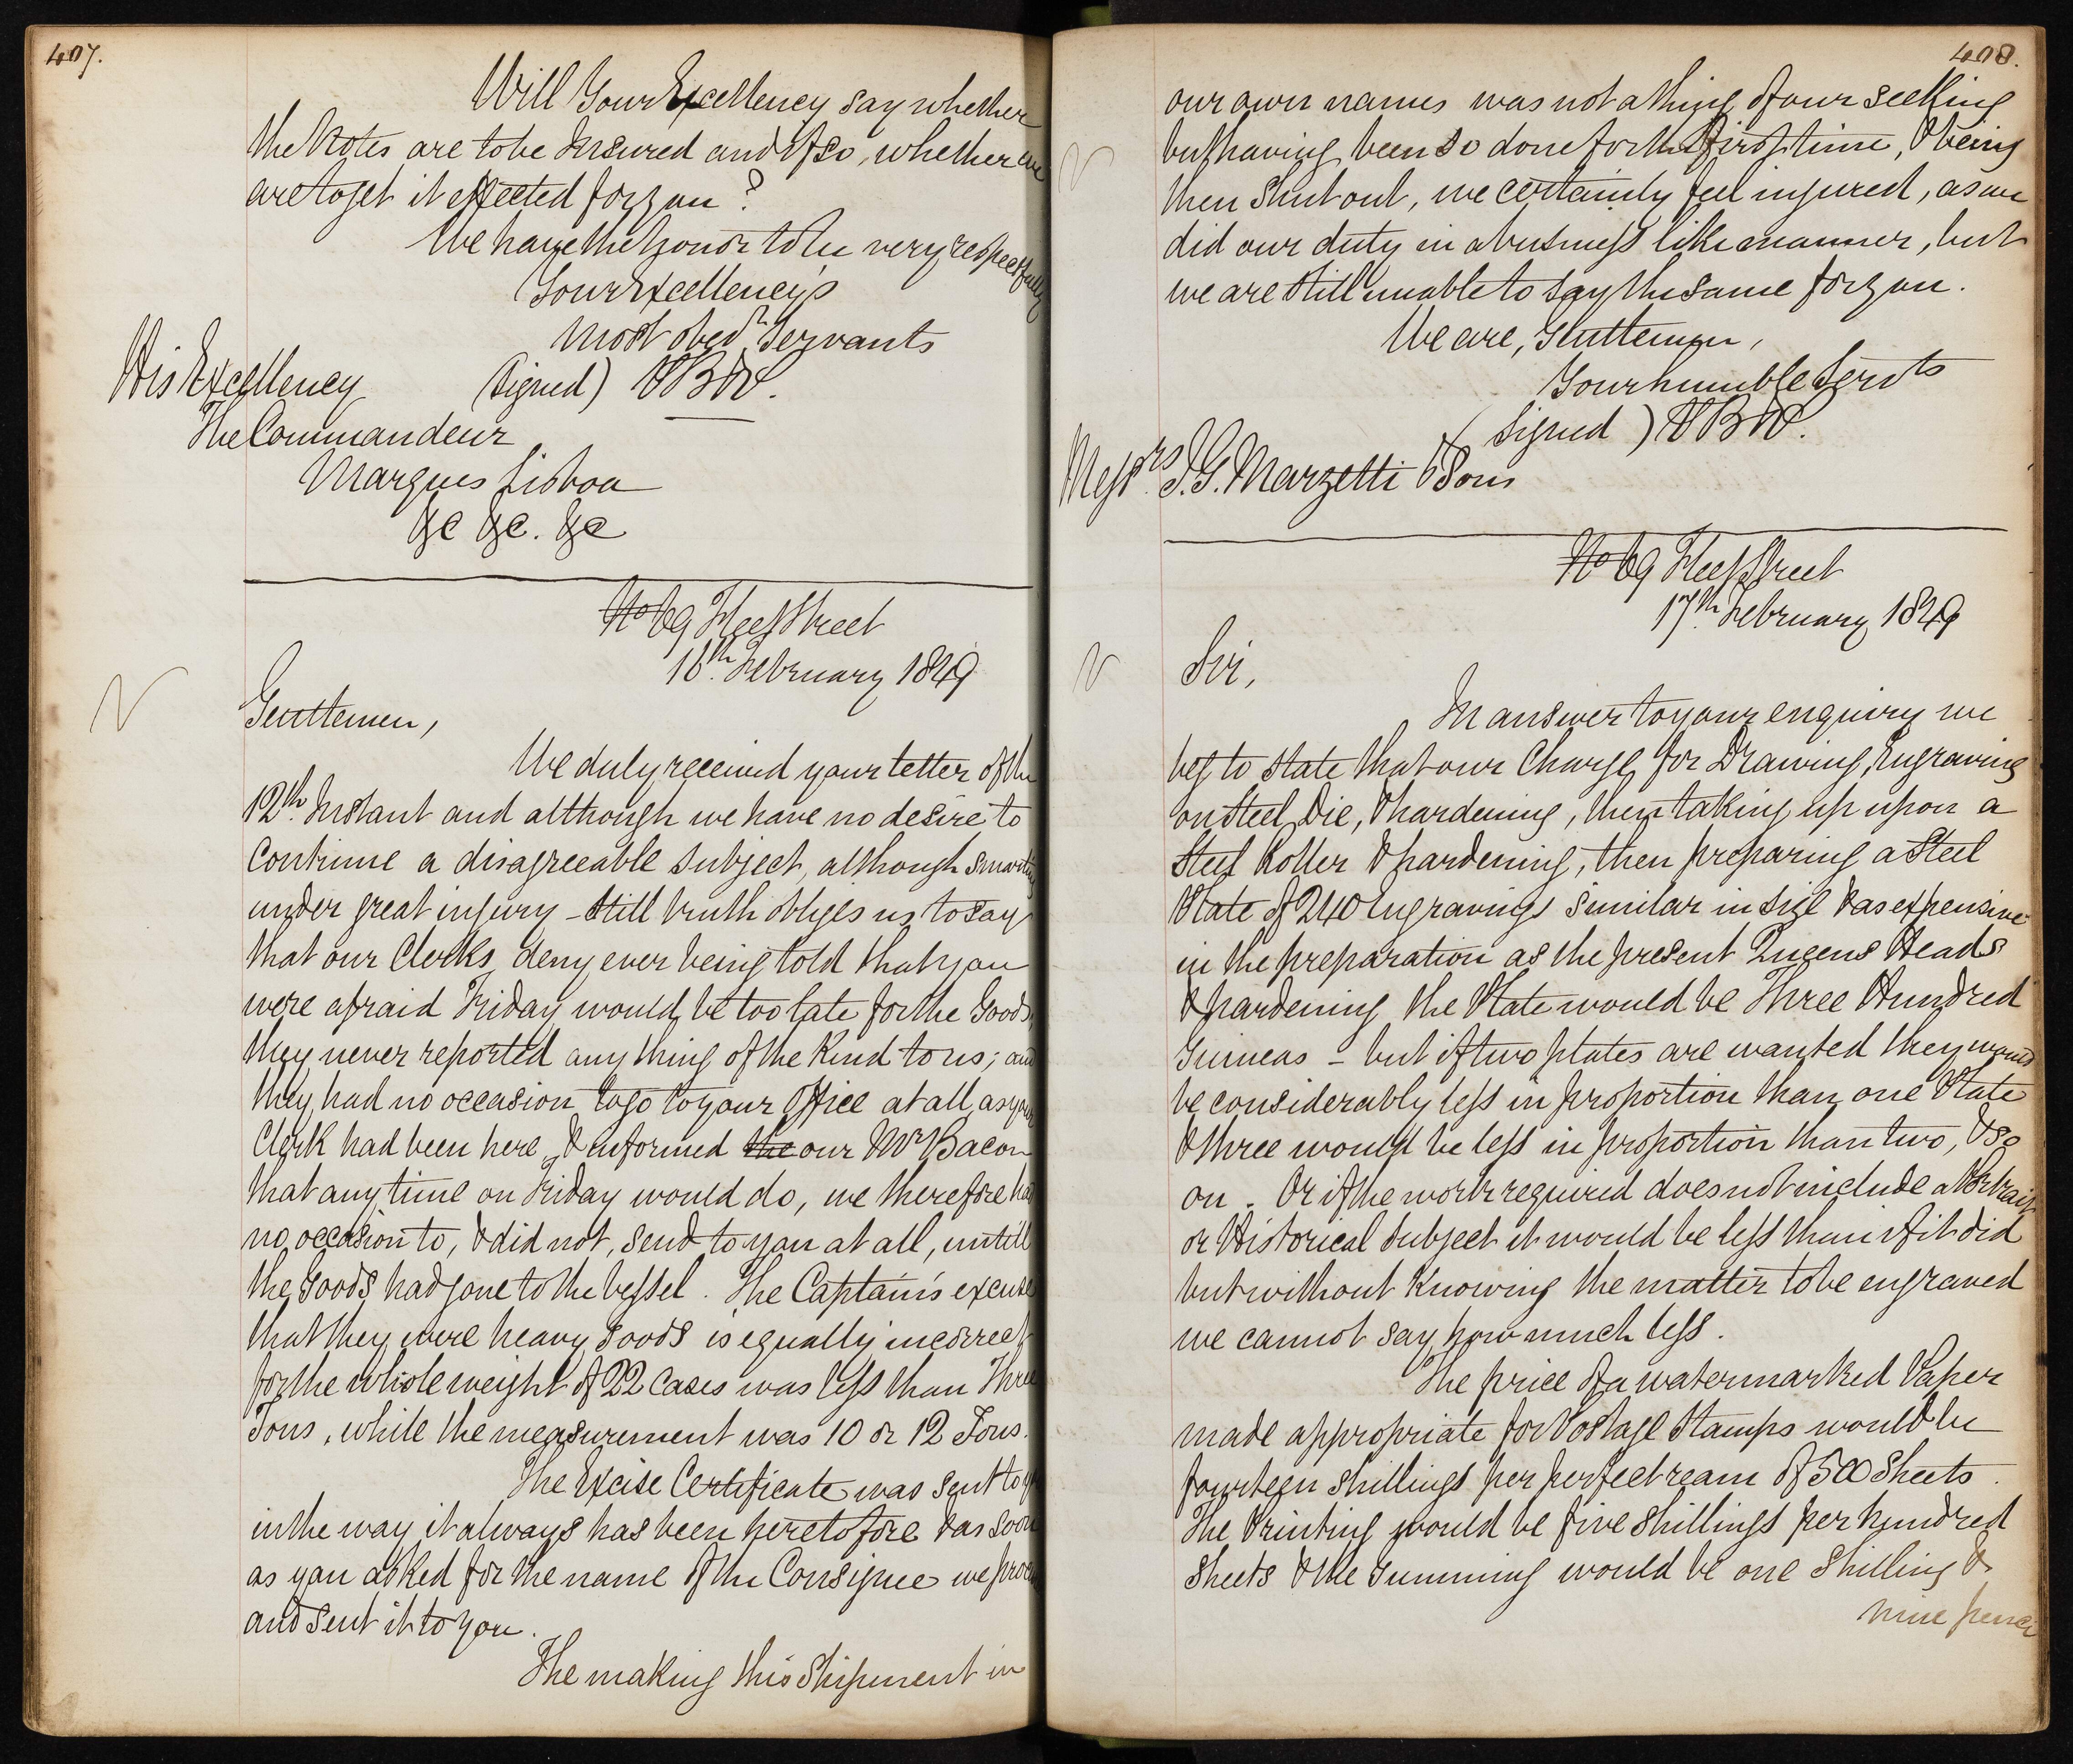 407.
Will Your Excellency say whether
the Notes are to be Insured and if so, whether we
are to get it effected for you?
We have the honor to be very respectfully
Your Excellency's
Most obedt Servants
(Signed) PBP.
His Excellency
The Commandeur
Marques Lisboa
&c &c. &c
No 69 Fleet Street
16th February 1849
Gentlemen,
We duly received your letter of the
12th Instant and although we have no desire to
Continue a disagreeable subject, although smarting
under great injury – Still truth obliges us to say
that our Clerks deny ever being told that you
were afraid Friday would be too late for the Goods,
they never reported any thing of the Kind to us; and
they had no occasion to go to your Office at all, as your
Clerk had been here & informed the our Mr Bacon
that any time on Friday would do, we therefore had
no occasion to, & did not, send to you at all, untill
the Goods had gone to the Vessel. The Captain's excuse
that they were heavy Goods is equally incorrect
for the whole weight of 22 Cases was less than Three
Tons, while the measurement was 10 or 12 Tons.
The Excise Certificate was sent to you
in the way it always has been heretofore & as soon
as you asked for the name of the Consignee we
and sent it to you.
The making this Shipment in
408.
our own names was not a thing of our seeking
but having been so done for the first time, & being
then Shut out, we certainly feel injured, as we
did our duty in a business like manner, but
we are still unable to say the same for you.
We are, Gentlemen,
Your humble Servts
(Signed) PBP.
Messrs. J. G. Marzetti & Sons
No 69 Fleet Street
17th February 1849
Sir,
In answer to your enquiry we
beg to state that our Charge for Drawing, Engraving
on Steel Die, & hardening, then taking up upon a
Steel Roller & hardening, then preparing a Steel
Plate of 240 Engravings similar in size & as expensive
in the preparation as the present Queens Heads
& hardening the Plate would be Three Hundred
Guineas – but if two plates are wanted they would
be considerably less in proportion than one Plate
& three would be less in proportion than two, & so
on. Or if the work required does not include a Portrait
or Historical subject it would be less than if it did
but without Knowing the matter to be engraved
we cannot say how much less.
The price of a watermarked Paper
made appropriate for Postage Stamps would be
fourteen shillings per perfect ream of 500 Sheets.
The Printing would be five shillings per hundred
Sheets & the Gumming would be one Shilling &
nine pence